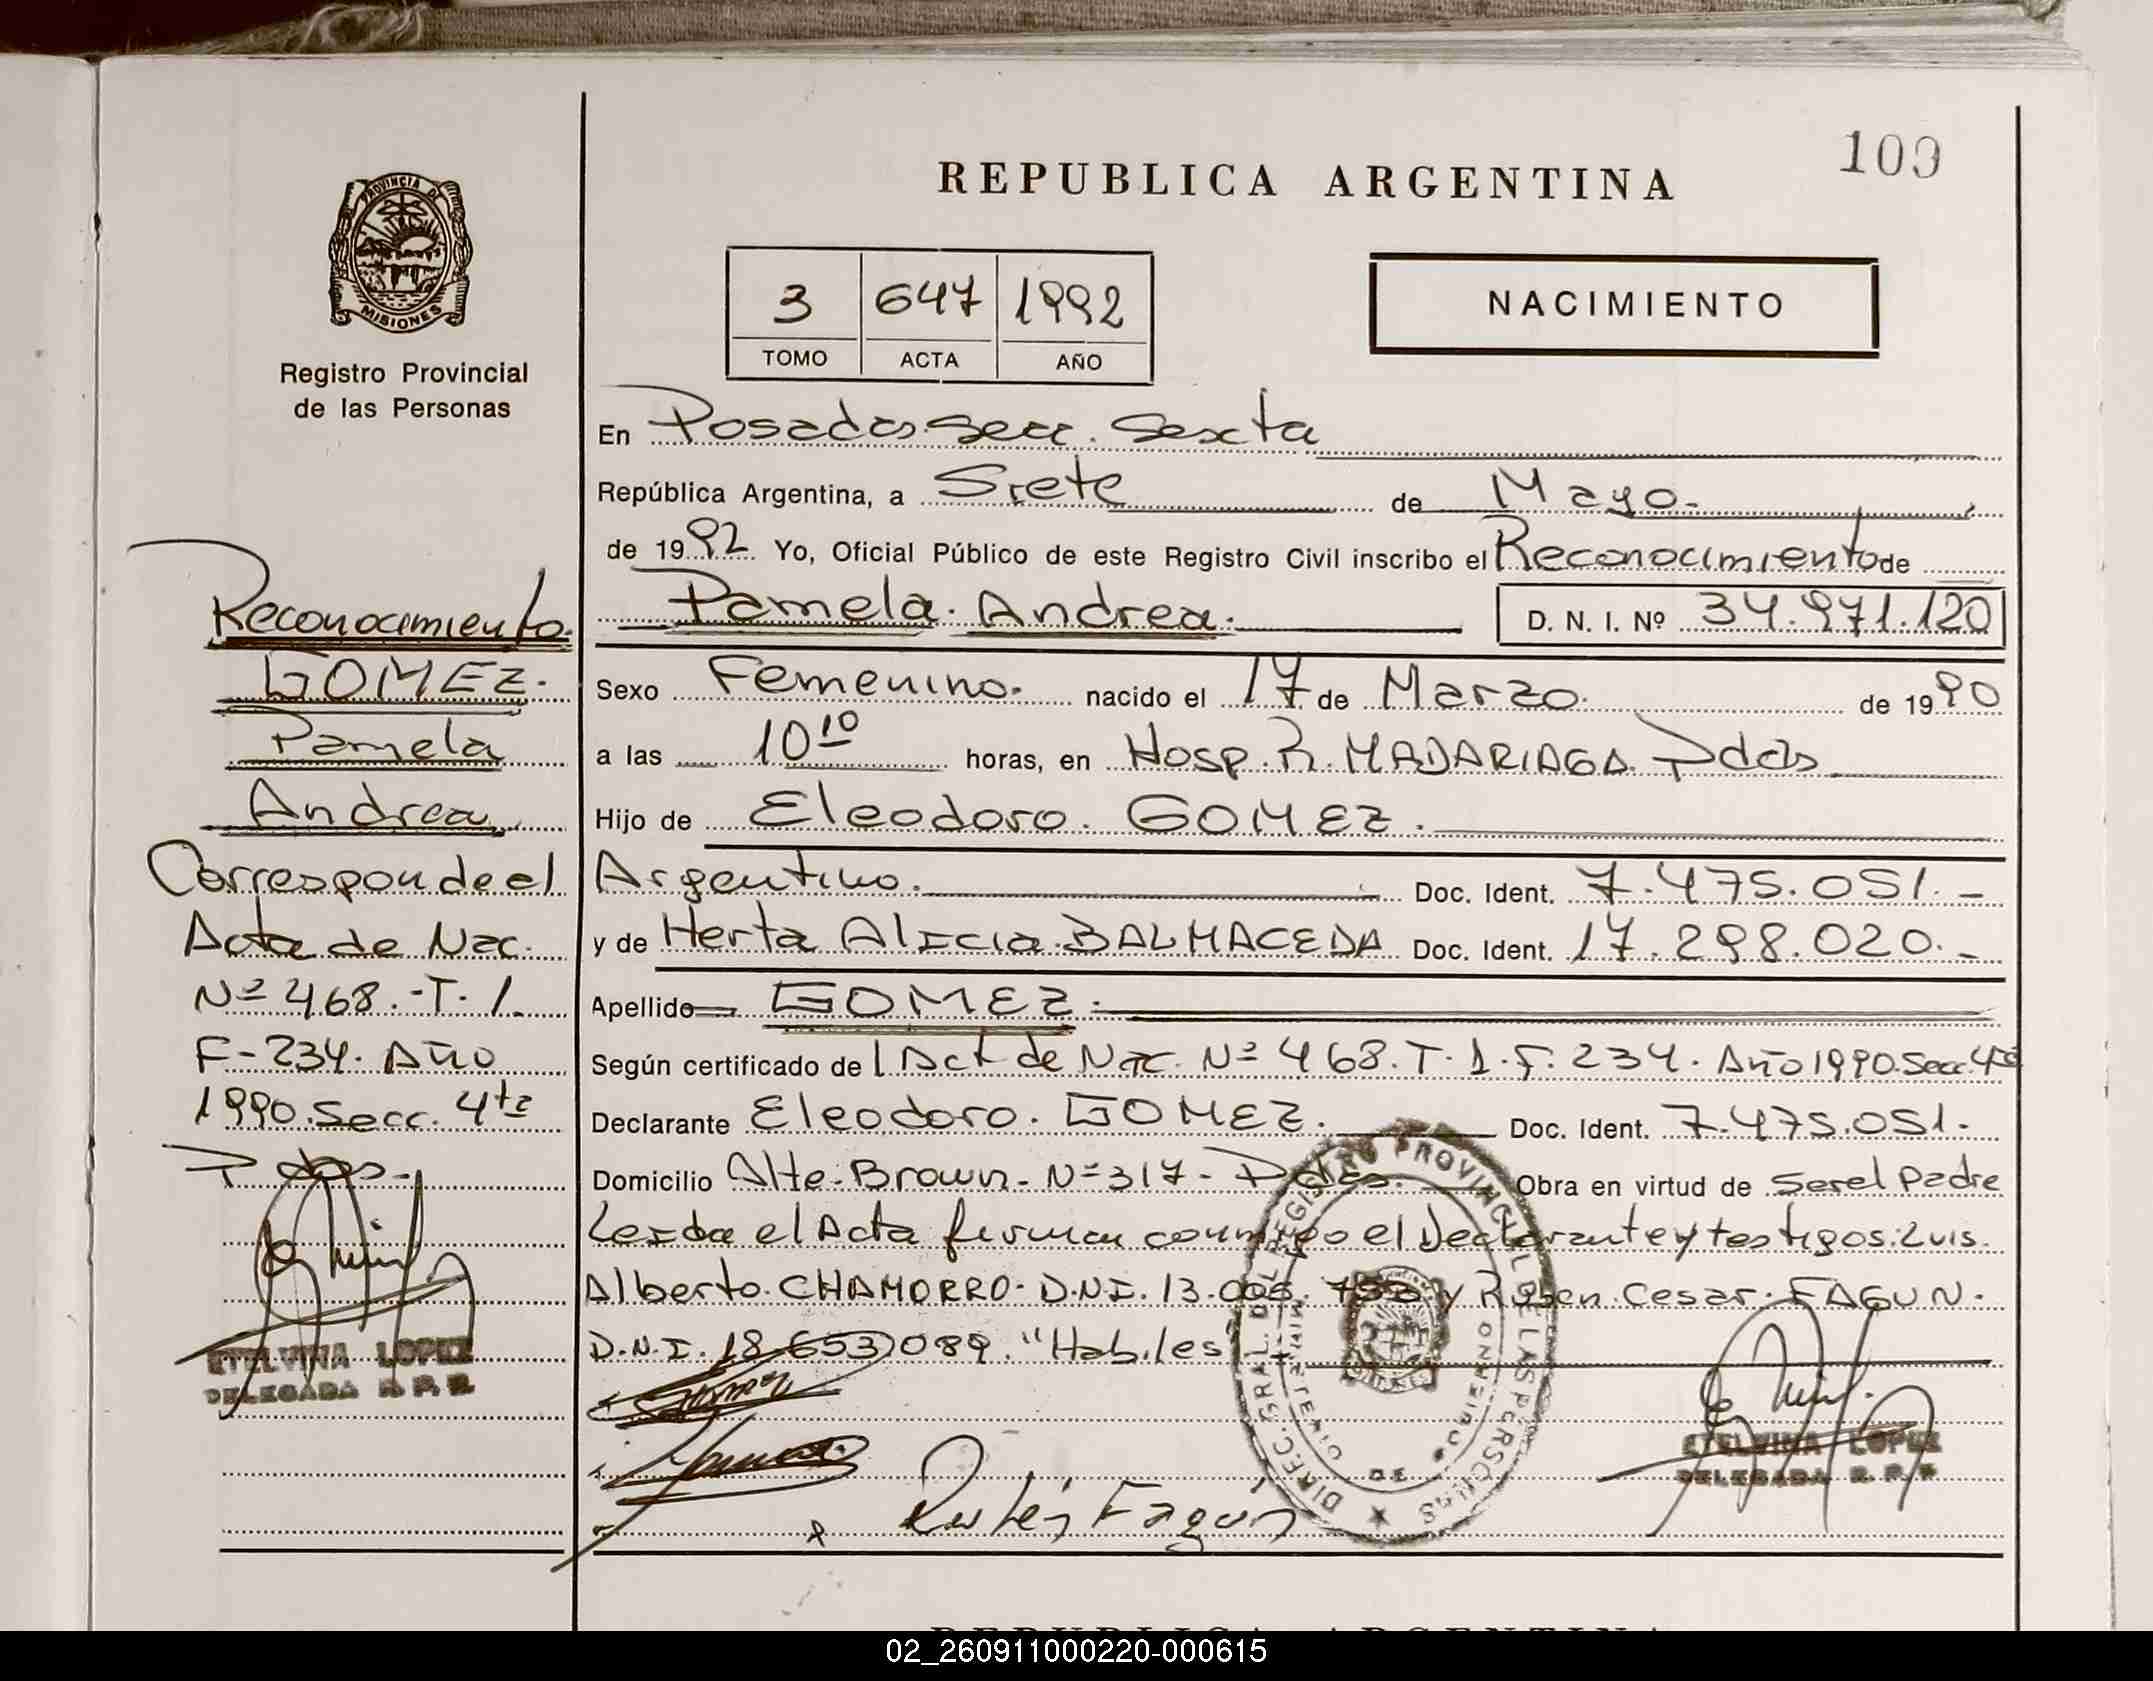 109
REPUBLICA ARGENTINA
PROVINCIA DE
MISIONES
Registro Provincial
de las Personas
3 647 1992
TOMO ACTA AÑO
NACIMIENTO
En Posadas Secc. Sexta
República Argentina, a Siete de Mayo.
de 1992 Yo, Oficial Público de este Registro Civil inscribo el Reconocimiento de
Pamela. Andrea. D. N. I. Nº 34.971.120
Sexo Femenino. nacido el 17 de Marzo. de 1990
a las 10 10 horas, en Hosp. R. MADARIAGA. Pdas
Hijo de Eleodoro. GOMEZ.
Argentino. Doc. Ident. 7.475.051.-
y de Herta Alicia. BALMACEDA Doc. Ident. 17.298.020.-
Apellido GOMEZ.
Según certificado de Act de Nac. Nº 468. T. 1. F. 234. Año 1990. Secc. 4ta
Declarante Eleodoro. GOMEZ. Doc. Ident. 7.475.051.
Domicilio Alte. Brown. Nº 317- Pdas. Obra en virtud de Ser el padre
Leida el Acta firman conmigo el Declarante y testigos: Luis.
Alberto. CHAMORRO- D.N.I. 13.006. y Ruben. Cesar. FAGUN.
D.N.I. 18.653.089. "Habiles"
Rubén Fagún
ETELVINA LOPEZ
DELEGADA R. P. P.
DIREC. GRAL. DEL REGISTRO PROVINCIAL DE LAS PERSONAS
Reconocimiento
GOMEZ.
Pamela
Andrea
Corresponde el
Acta de Nac.
Nº 468.-T. 1.
F-234. Año
1990. Secc. 4ta
Pdas.
ETELVINA LOPEZ
DELEGADA R. P. P.
REPUBLICA ARGENTINA
02_260911000220-000615